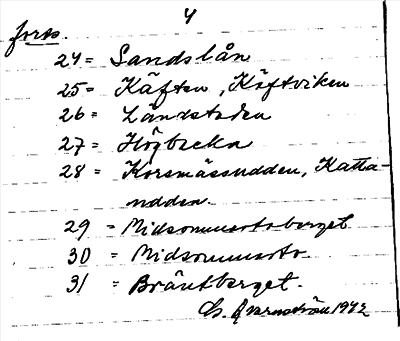 4
forts.
24 = Sandslån
25 = Käften, Käftviken
26 = Ländstaden
27 = Högbacka
28 = Korsmässudden, Katta-
udden.
29 = Midsommartoberget
30 = Midsommarto
31 = Bräntberget.
1942